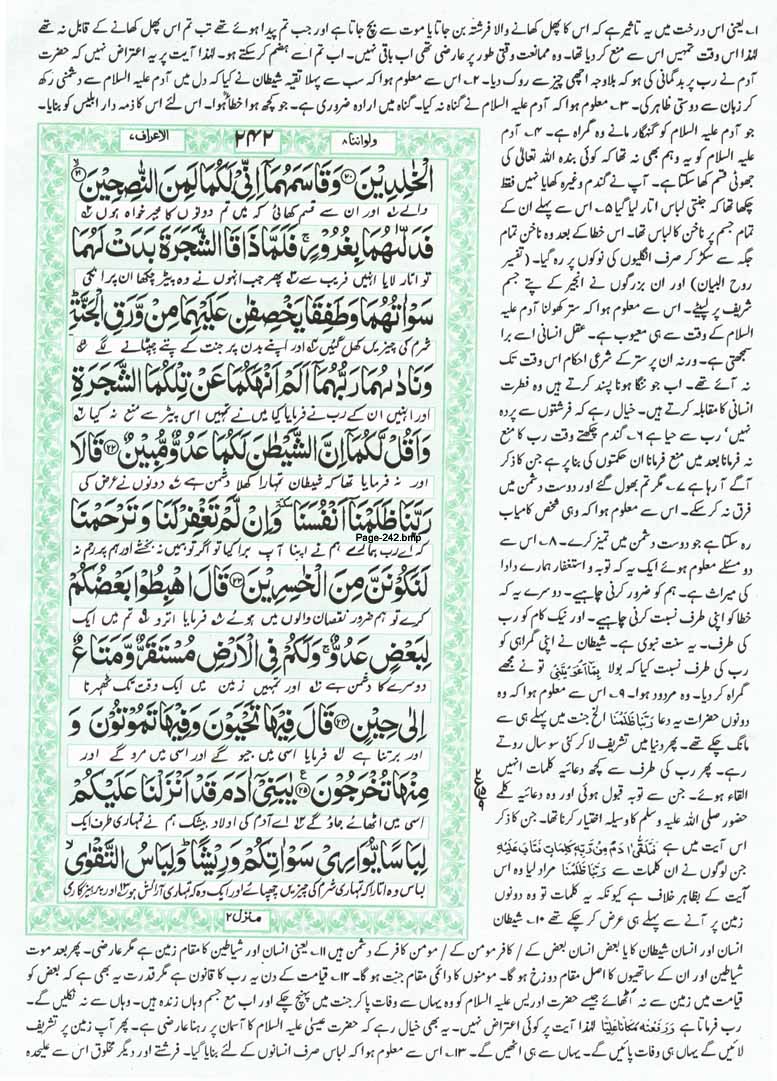 ۱۔ یعنی اس درخت میں یہ تاثیر ہے کہ اس کا پھل کھانے والا فرشتہ بن جاتا یا موت سے بچ جاتا ہے اور جب تم پیدا ہوئے تھے تب تم اس پھل کھانے کے قابل نہ تھے
لہٰذا اس وقت تمہیں اس سے منع کر دیا تھا۔ وہ ممانعت وقتی طور پر عارضی تھی اب باقی نہیں۔ اب تم اسے ہضم کر سکتے ہو۔ لہٰذا آیت پر یہ اعتراض نہیں کہ حضرت
آدم نے رب پر بدگمانی کی ہو کہ بلاوجہ اچھی چیز سے روک دیا۔ ۲۔ اس سے معلوم ہوا کہ سب سے پہلا تقیہ شیطان نے کیا کہ دل میں آدم علیہ السلام سے دشمنی رکھ
کر زبان سے دوستی ظاہر کی۔ ۳۔ معلوم ہوا کہ آدم علیہ السلام نے گناہ نہ کیا۔ گناہ میں ارادہ ضروری ہے۔ جو کچھ ہوا خطاً ہوا۔ اس لئے اس کا ذمہ دار ابلیس کو بنایا۔
جو آدم علیہ السلام کو گنہگار مانے وہ گمراہ ہے۔ ۴۔ آدم
علیہ السلام کو یہ وہم بھی نہ تھا کہ کوئی بندہ اللہ تعالیٰ کی
جھوٹی قسم کھا سکتا ہے۔ آپ نے گندم وغیرہ کھایا نہیں فقط
چکھا تھا کہ جنتی لباس اتار لیا گیا ۵۔ اس سے پہلے ان کے
تمام جسم پر ناخن کا لباس تھا۔ اس خطا کے بعد وہ ناخن تمام
جگہ سے سکڑ کر صرف انگلیوں کی نوکوں پر رہ گیا۔ (تفسیر
روح البیان) اور ان بزرگوں نے انجیر کے پتے جسم
شریف پر لپیٹے۔ اس سے معلوم ہوا کہ ستر کھولنا آدم علیہ
السلام کے وقت سے ہی معیوب ہے۔ عقل انسانی اسے برا
سمجھتی ہے۔ ورنہ ان پر ستر کے شرعی احکام اس وقت تک
نہ آئے تھے۔ اب جو ننگا ہونا پسند کرتے ہیں وہ فطرت
انسانی کا مقابلہ کرتے ہیں۔ خیال رہے کہ فرشتوں سے پردہ
نہیں، رب سے حیا ہے ۶۔ گندم چکھتے وقت رب کا منع
نہ فرمانا بعد میں منع فرمانا ان حکمتوں کی بنا پر ہے جن کا ذکر
آگے آ رہا ہے ۷۔ مگر تم بھول گئے اور دوست دشمن میں
فرق نہ کر سکے۔ اس سے معلوم ہوا کہ وہی شخص کامیاب
رہ سکتا ہے جو دوست دشمن میں تمیز کرے۔ ۸۔ اس سے
دو مسئلے معلوم ہوئے ایک یہ کہ توبہ و استغفار ہمارے دادا
کی میراث ہے۔ ہم کو ضرور کرنی چاہیے۔ دوسرے یہ کہ
خطا کو اپنی طرف نسبت کرنی چاہیے۔ اور نیک کام کو رب
کی طرف۔ یہ سنت نبوی ہے۔ شیطان نے اپنی گمراہی کو
رب کی طرف نسبت کیا کہ بولا بِمَآ اَغْوَيْتَنِىْ تو نے مجھے
گمراہ کر دیا۔ وہ مردود ہوا۔ ۹۔ اس سے معلوم ہوا کہ وہ
دونوں حضرات یہ دعا رَبَّنَا ظَلَمْنَا الخ جنت میں پہلے ہی سے
مانگ چکے تھے۔ پھر دنیا میں تشریف لا کر کئی سو سال روتے
رہے۔ پھر رب کی طرف سے کچھ دعائیہ کلمات انہیں
القاء ہوئے۔ جن سے توبہ قبول ہوئی اور وہ دعائیہ کلمے
حضور صلی اللہ علیہ وسلم کا وسیلہ اختیار کرنا تھا۔ جن کا ذکر
اس آیت میں ہے فَتَلَقّٰى اٰدَمُ مِنْ رَّبِّهٖ كَلِمٰتٍ فَتَابَ عَلَيْهِ
جن لوگوں نے ان کلمات سے رَبَّنَا ظَلَمْنَا مراد لیا وہ اس
آیت کے بظاہر خلاف ہے کیونکہ یہ کلمات تو وہ دونوں
زمین پر آنے سے پہلے ہی عرض کر چکے تھے ۱۰۔ شیطان
ولو اننا ۸
۲۴۲
الاعراف ۷
الْخٰلِدِيْنَ ۝۲۰ وَقَاسَمَهُمَآ اِنِّىْ لَكُمَا لَمِنَ النّٰصِحِيْنَ ۝۲۱
والے اور ان سے قسم کھائی کہ میں تم دونوں کا خیر خواہ ہوں
فَدَلّٰىهُمَا بِغُرُوْرٍ ۚ فَلَمَّا ذَاقَا الشَّجَرَةَ بَدَتْ لَهُمَا
تو اتار لایا انہیں فریب سے پھر جب انہوں نے وہ پیڑ چکھا ان پر انکی
سَوْاٰتُهُمَا وَطَفِقَا يَخْصِفٰنِ عَلَيْهِمَا مِنْ وَّرَقِ الْجَنَّةِ ؕ
شرم کی چیزیں کھل گئیں اور اپنے بدن پر جنت کے پتے چپٹانے لگے
وَنَادٰىهُمَا رَبُّهُمَآ اَلَمْ اَنْهَكُمَا عَنْ تِلْكُمَا الشَّجَرَةِ
اور انہیں ان کے رب نے فرمایا کیا میں نے تمہیں اس پیڑ سے منع نہ کیا
وَاَقُلْ لَّكُمَآ اِنَّ الشَّيْطٰنَ لَكُمَا عَدُوٌّ مُّبِيْنٌ ۝۲۲ قَالَا
اور نہ فرمایا تھا کہ شیطان تمہارا کھلا دشمن ہے دونوں نے عرض کی
رَبَّنَا ظَلَمْنَآ اَنْفُسَنَا ٚ وَاِنْ لَّمْ تَغْفِرْ لَنَا وَتَرْحَمْنَا
Page-242.bmp
کہ اے رب ہمارے ہم نے اپنا آپ برا کیا تو اگر تو ہمیں نہ بخشے اور ہم پر رحم نہ
لَنَكُوْنَنَّ مِنَ الْخٰسِرِيْنَ ۝۲۳ قَالَ اهْبِطُوْا بَعْضُكُمْ
کرے تو ہم ضرور نقصان والوں میں ہوئے فرمایا اترو تم میں ایک
لِبَعْضٍ عَدُوٌّ ۚ وَلَكُمْ فِى الْاَرْضِ مُسْتَقَرٌّ وَّمَتَاعٌ
دوسرے کا دشمن ہے اور تمہیں زمین میں ایک وقت تک ٹھہرنا
اِلٰى حِيْنٍ ۝۲۴ قَالَ فِيْهَا تَحْيَوْنَ وَفِيْهَا تَمُوْتُوْنَ وَ
اور برتنا ہے فرمایا اسی میں جیو گے اور اسی میں مرو گے اور
مِنْهَا تُخْرَجُوْنَ ۝۲۵ يٰبَنِىْٓ اٰدَمَ قَدْ اَنْزَلْنَا عَلَيْكُمْ
اسی میں اٹھائے جاؤ گے اے آدم کی اولاد بیشک ہم نے تمہاری طرف ایک
لِبَاسًا يُّوَارِىْ سَوْاٰتِكُمْ وَرِيْشًا ؕ وَلِبَاسُ التَّقْوٰى
لباس وہ اتارا کہ تمہاری شرم کی چیزیں چھپائے اور ایک وہ کہ تمہاری آرائش ہو اور پرہیزگاری
منزل ۲
انسان اور انسان شیطان کا یا بعض انسان بعض کے / کافر مومن کے / مومن کافر کے دشمن ہیں ۱۱۔ یعنی انسان اور شیاطین کا مقام زمین ہے مگر عارضی۔ پھر بعد موت
شیاطین اور ان کے ساتھیوں کا اصل مقام دوزخ ہو گا۔ مومنوں کا دائمی مقام جنت ہو گا۔ ۱۲۔ قیامت کے دن یہ رب کا قانون ہے مگر قدرت یہ بھی ہے کہ بعض کو
قیامت میں زمین سے نہ اٹھائے جیسے حضرت ادریس علیہ السلام کو وہ یہاں سے وفات پا کر جنت میں پہنچ چکے اور اب مع جسم وہاں زندہ ہیں۔ وہاں سے نہ نکلیں گے۔
رب فرماتا ہے وَرَفَعْنٰهُ مَكَانًا عَلِيًّا لہٰذا آیت پر کوئی اعتراض نہیں۔ یہ بھی خیال رہے کہ حضرت عیسیٰ علیہ السلام کا آسمان پر رہنا عارضی ہے۔ پھر آپ زمین پر تشریف
لائیں گے یہاں ہی وفات پائیں گے۔ یہاں سے ہی اٹھیں گے۔ ۱۳۔ اس سے معلوم ہوا کہ لباس صرف انسانوں کے لئے بنایا گیا۔ فرشتے اور دیگر مخلوق اس سے علیحدہ